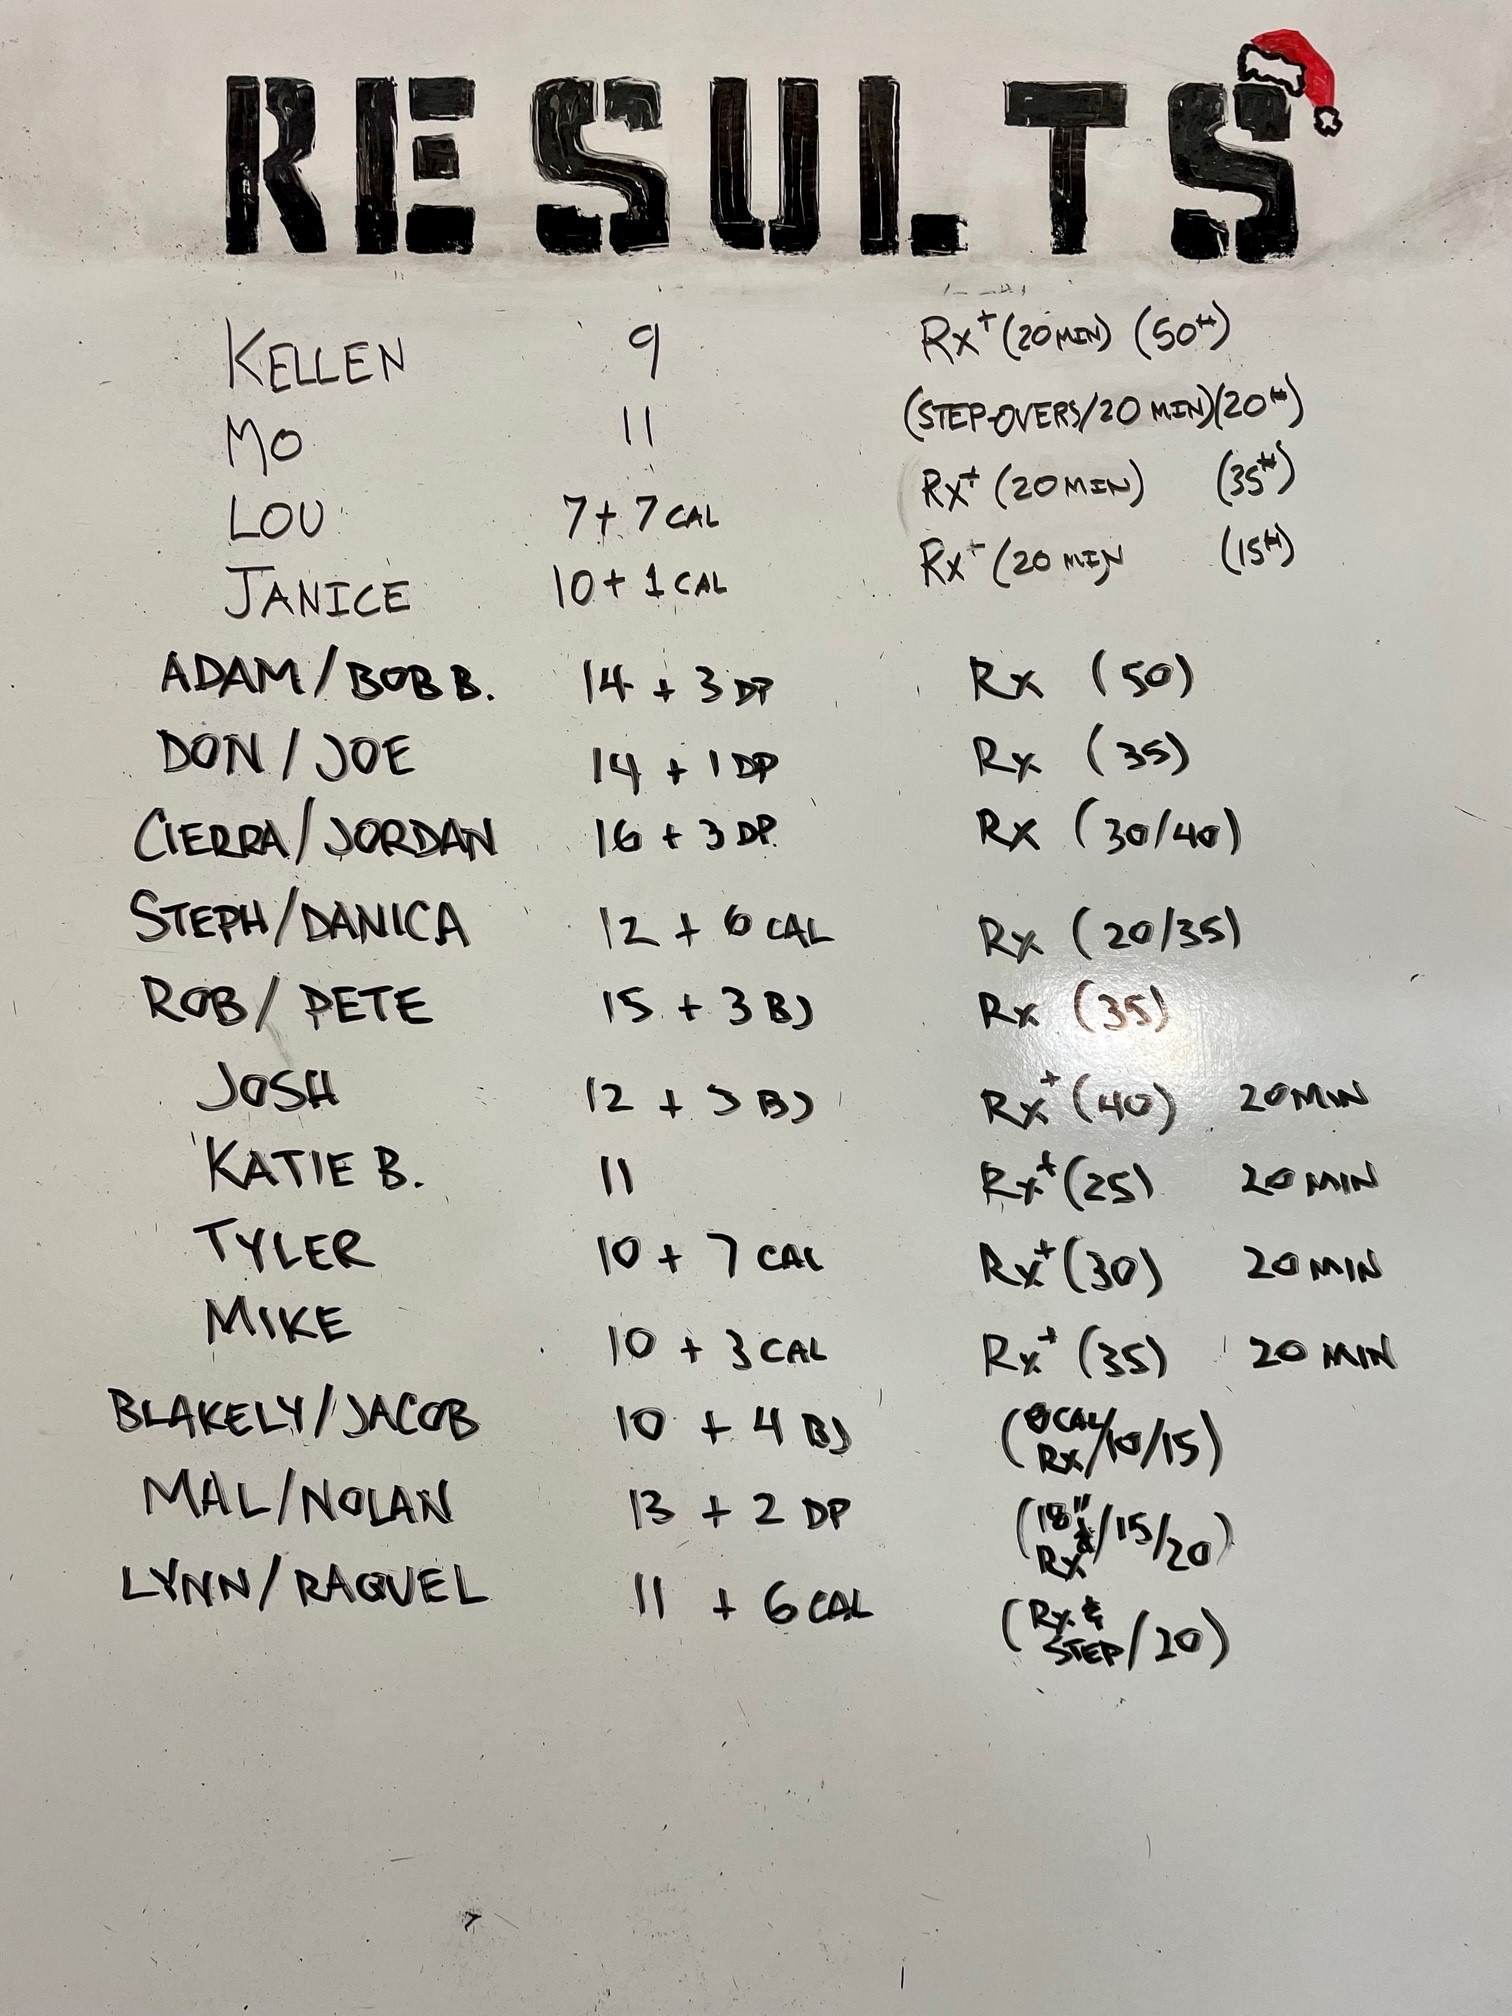 RESULTS
KELLEN 9 Rx+ (20 MIN) (50#)
MO 11 (STEP-OVERS/20 MIN)(20#)
LOU 7 + 7 CAL Rx+ (20 MIN) (35#)
JANICE 10 + 1 CAL Rx+ (20 MIN) (15#)
ADAM/BOB B. 14 + 3 DP Rx (50)
DON/JOE 14 + 1 DP Rx (35)
CIERRA/JORDAN 16 + 3 DP Rx (30/40)
STEPH/DANICA 12 + 6 CAL Rx (20/35)
ROB/PETE 15 + 3 BJ Rx (35)
JOSH 12 + 5 BJ Rx+ (40) 20 MIN
KATIE B. 11 Rx+ (25) 20 MIN
TYLER 10 + 7 CAL Rx+ (30) 20 MIN
MIKE 10 + 3 CAL Rx+ (35) 20 MIN
BLAKELY/JACOB 10 + 4 BJ (8 CAL/Rx/10/15)
MAL/NOLAN 13 + 2 DP (18" & Rx/15/20)
LYNN/RAQUEL 11 + 6 CAL (Rx & STEP/20)